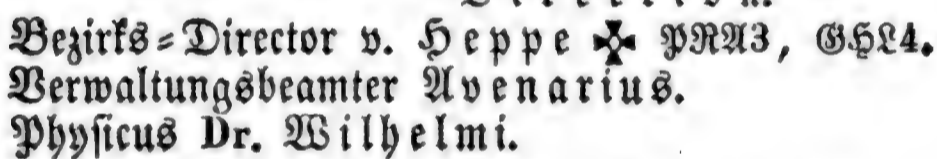 Bezirks-Director v. Heppe ✠ PRA3, GHL4.
Verwaltungsbeamter Avenarius.
Physicus Dr. Wilhelmi.